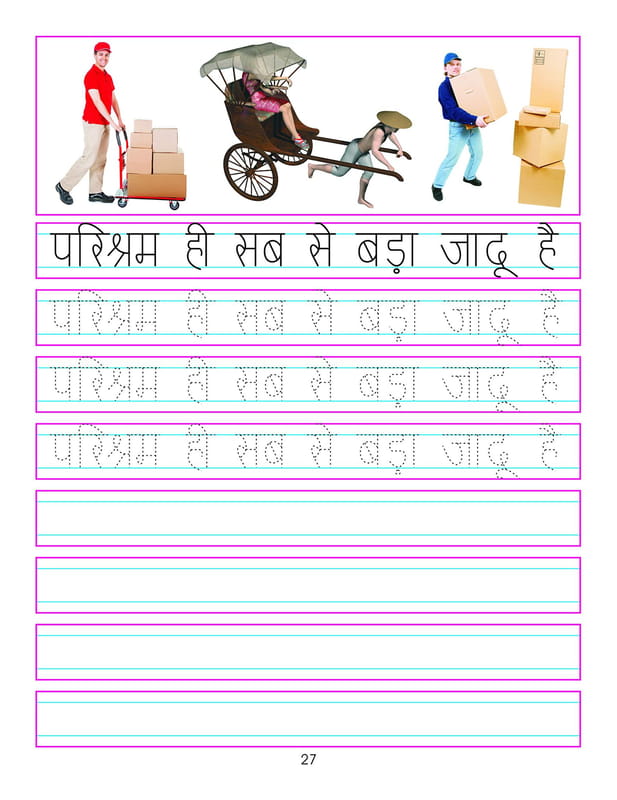 परिश्रम ही सब से बड़ा जादू है
परिश्रम ही सब से बड़ा जादू है
परिश्रम ही सब से बड़ा जादू है
परिश्रम ही सब से बड़ा जादू है
27